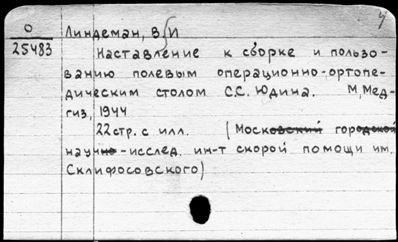 О
25483
Линдеман, В. И
Наставление к сборке и пользо-
ванию полевым операционно-ортопе-
дическим столом С.С. Юдина. М, Мед-
гиз, 1944
22 стр. с илл. (Московский городской
научно-исслед. ин-т скорой помощи им.
Склифосовского)